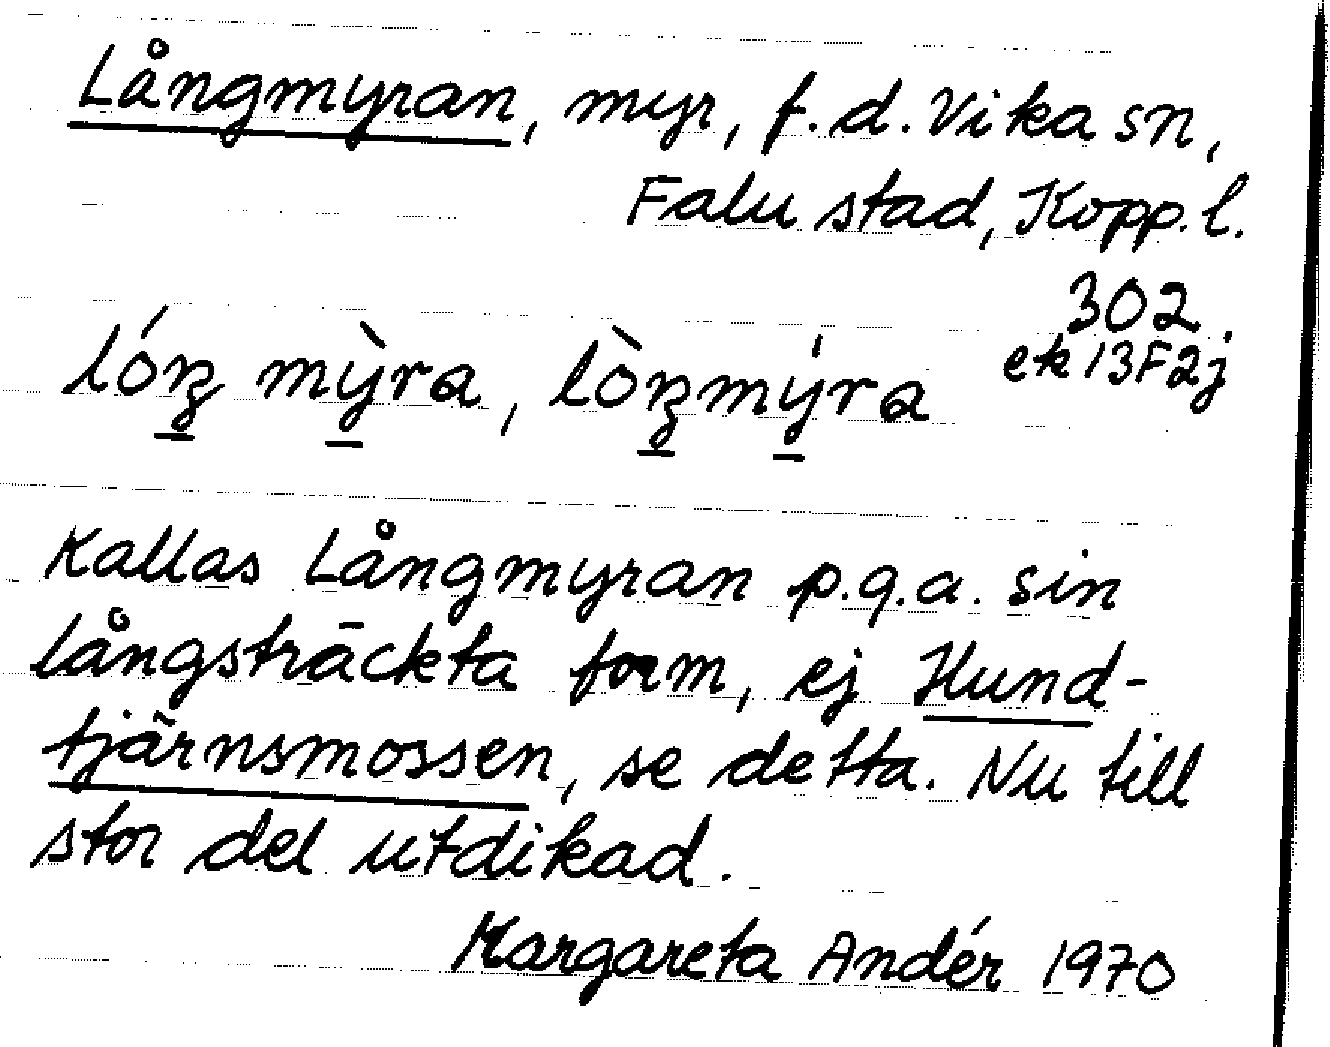 Långmyran, myr, f.d. Vika sn,
Falu stad, Kopp. l.
302.
ek 13F2j
lóŋ mỳ̠ra, lòŋmý̠ra
Kallas Långmyran p.g.a. sin
långsträckta form, ej Hund-
tjärnsmossen, se detta. Nu till
stor del utdikad.
Margareta Andér 1970